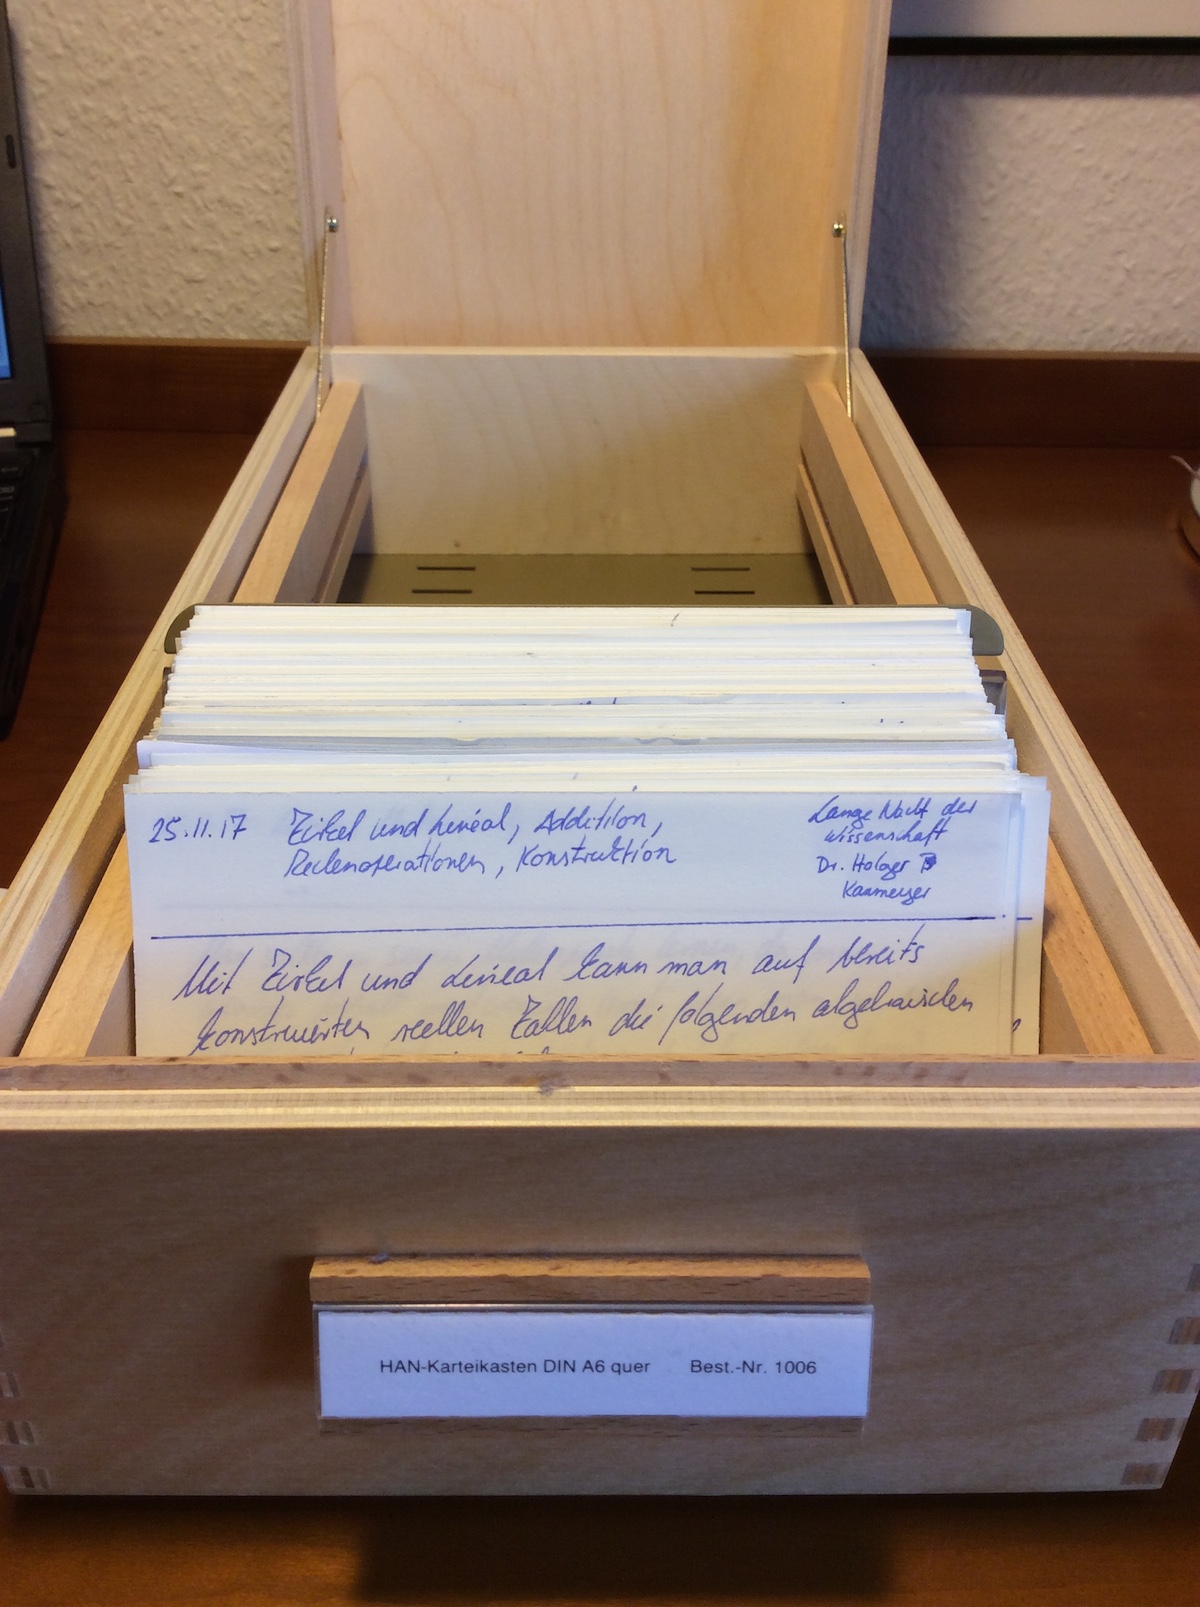 25.11.17
Zirkel und Lineal, Addition,
Rechenoperationen, Konstruktion
Lange Nacht der
Wissenschaft
Dr. Holger
Mit Zirkel und Lineal kann man auf bereits
konstruierten reellen Zahlen die folgenden algebraischen
HAN-Karteikasten DIN A6 quer Best.-Nr. 1006